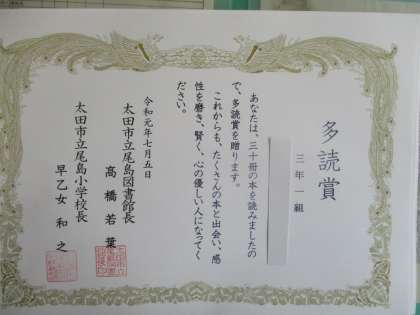 多読賞
三年一組
あなたは、三十冊の本を読みましたの
で、多読賞を贈ります。
これからも、たくさんの本と出会い、感
性を磨き、賢く、心の優しい人になってく
ださい。
令和元年七月五日
太田市立尾島図書館長
高橋若葉
太田市立尾島小学校長
早乙女和之